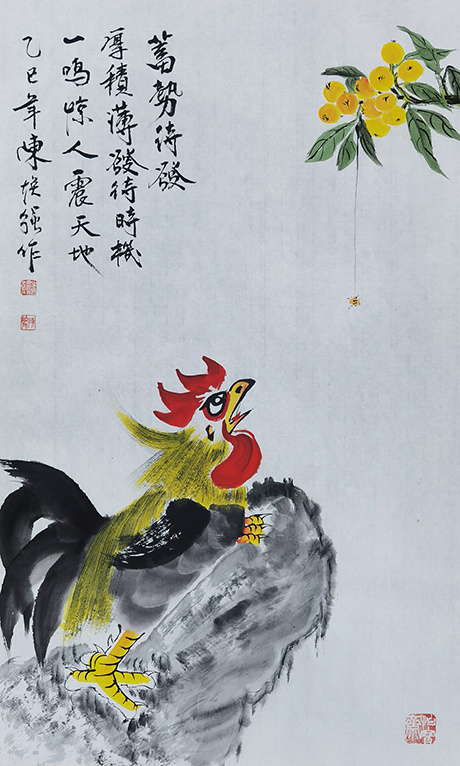 蓄勢待發
厚積薄發待時機
一鳴惊人震天地
乙巳年陳
作